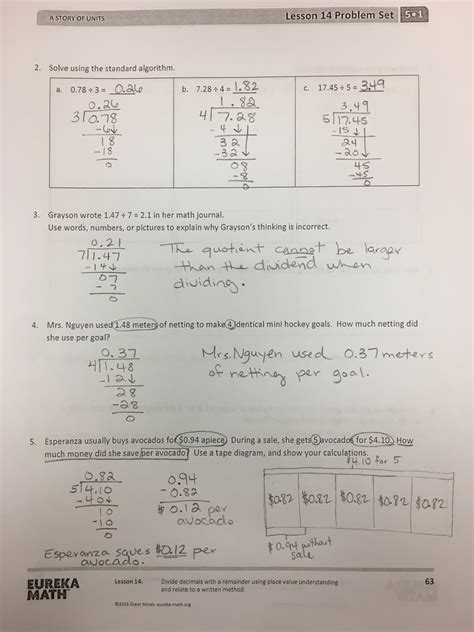 A STORY OF UNITS
Lesson 14 Problem Set 5•1
2. Solve using the standard algorithm.
a. 0.78 ÷ 3 = 0.26
b. 7.28 ÷ 4 = 1.82
c. 17.45 ÷ 5 = 3.49
0.26
3 0.78
-6
18
-18
0
1.82
4 7.28
-4
32
-32
08
-8
0
3.49
5 17.45
-15
24
-20
45
-45
0
3. Grayson wrote 1.47 ÷ 7 = 2.1 in her math journal.
Use words, numbers, or pictures to explain why Grayson's thinking is incorrect.
0.21
7 1.47
-14
07
-7
0
The quotient cannot be larger
than the dividend when
dividing.
4. Mrs. Nguyen used 1.48 meters of netting to make 4 identical mini hockey goals. How much netting did
she use per goal?
0.37
4 1.48
-12
28
-28
0
Mrs. Nguyen used 0.37 meters
of netting per goal.
5. Esperanza usually buys avocados for $0.94 apiece. During a sale, she gets 5 avocados for $4.10. How
much money did she save per avocado? Use a tape diagram, and show your calculations.
0.82
5 4.10
-40
10
-10
0
0.94
- 0.82
$ 0.12 per
avocado
$4.10 for 5
$0.82 $0.82 $0.82 $0.82 $0.82
$0.94 without
sale
Esperanza saves $0.12 per
avocado.
EUREKA
MATH
Lesson 14: Divide decimals with a remainder using place value understanding
and relate to a written method.
63
©2015 Great Minds. eureka-math.org